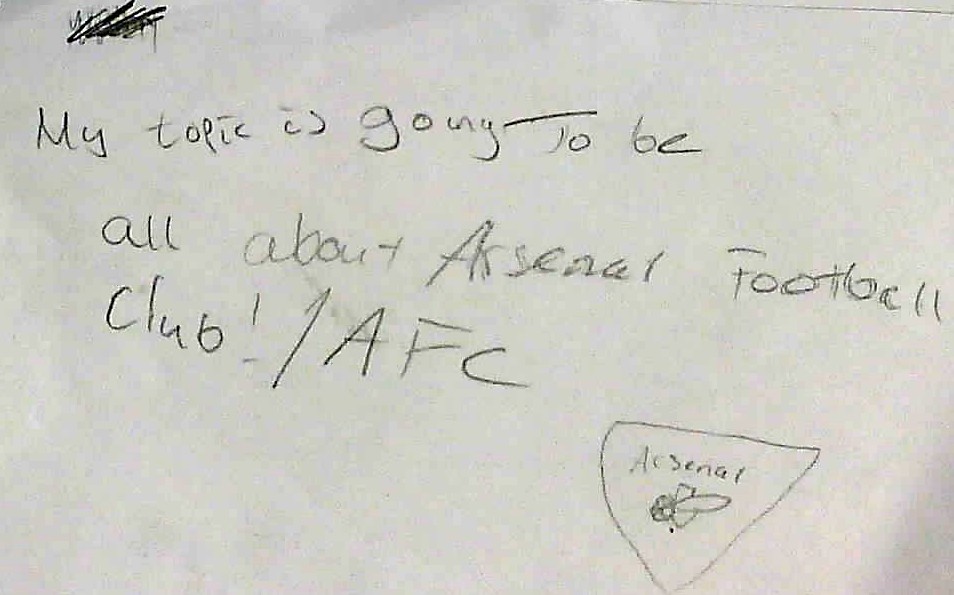 My topic is going To be
all about Arsenal Football
Club! / AFC
Arsenal